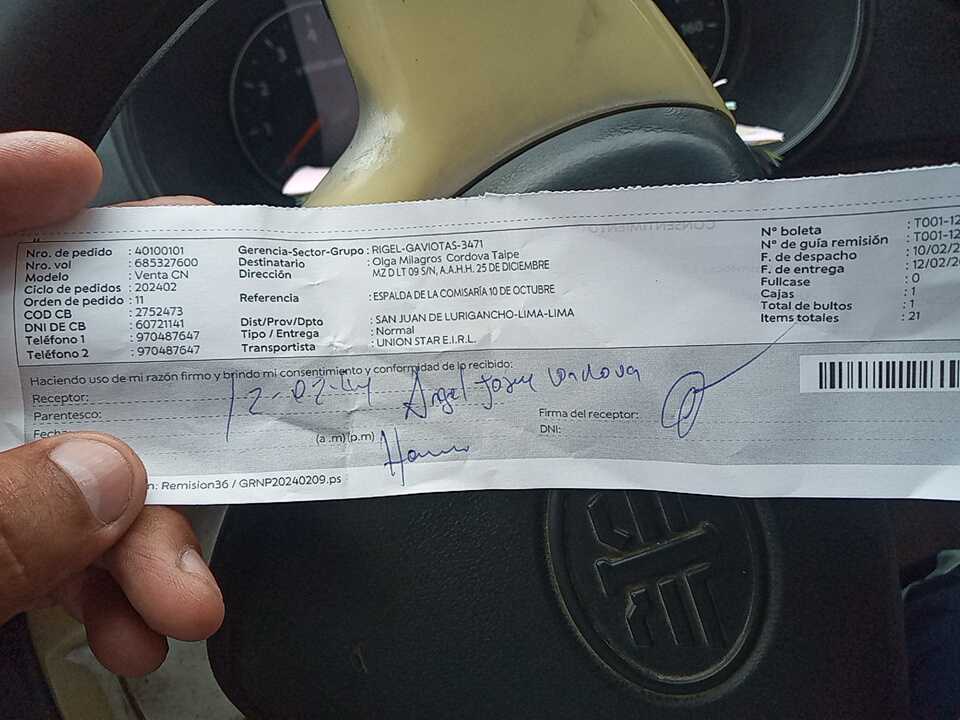 Nro. de pedido : 40100101
Nro. vol : 685327600
Modelo : Venta CN
Ciclo de pedidos : 202402
Orden de pedido : 11
COD CB : 2752473
DNI DE CB : 60721141
Teléfono 1 : 970487647
Teléfono 2 : 970487647
Gerencia-Sector-Grupo : RIGEL-GAVIOTAS-3471
Destinatario : Olga Milagros Cordova Taipe
Dirección : MZ D LT 09 S/N, A.A.H.H. 25 DE DICIEMBRE
Referencia : ESPALDA DE LA COMISARÍA 10 DE OCTUBRE
Dist/Prov/Dpto : SAN JUAN DE LURIGANCHO-LIMA-LIMA
Tipo / Entrega : Normal
Transportista : UNION STAR E.I.R.L.
N° boleta : T001-12
N° de guía remisión : T001-12
F. de despacho : 10/02/2
F. de entrega : 12/02/20
Fullcase : 0
Cajas : 1
Total de bultos : 1
Items totales : 21
Haciendo uso de mi razón firmo y brindo mi consentimiento y conformidad de lo recibido:
Receptor: 12-02-24 Angel
Parentesco:
Fecha (a.m) (p.m)
Firma del receptor:
DNI:
n: Remision36 / GRNP20240209.ps